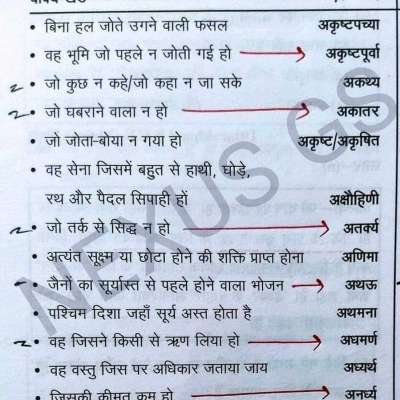 • बिना हल जोते उगने वाली फसल अकृष्टपच्या
• वह भूमि जो पहले न जोती गई हो अकृष्टपूर्वा
• जो कुछ न कहे/जो कहा न जा सके अकथ्य
• जो घबराने वाला न हो अकातर
• जो जोता-बोया न गया हो अकृष्ट/अकृषित
• वह सेना जिसमें बहुत से हाथी, घोड़े,
रथ और पैदल सिपाही हों अक्षौहिणी
• जो तर्क से सिद्ध न हो अतर्क्य
• अत्यंत सूक्ष्म या छोटा होने की शक्ति प्राप्त होना अणिमा
• जैनों का सूर्यास्त से पहले होने वाला भोजन अथऊ
• पश्चिम दिशा जहाँ सूर्य अस्त होता है अथमना
• वह जिसने किसी से ऋण लिया हो अधमर्ण
• वह वस्तु जिस पर अधिकार जताया जाय अध्यर्थ
• जिसकी कीमत कम हो अनर्घ्य
NEXUS GS